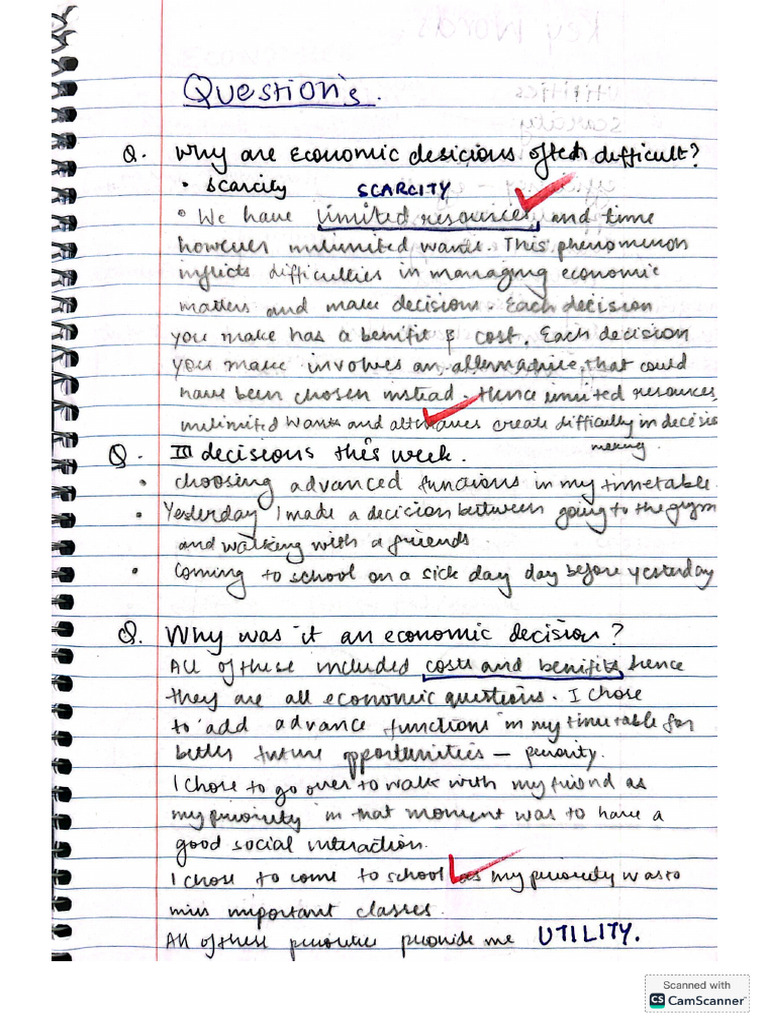 Question's.
Q. Why are economic desicious often difficult?
• Scarcity SCARCITY
• We have limited resources, and time
however unlimited wants. This phenomenon
inflicts difficulties in managing economic
matters and make decision. Each decision
you make has a benifit & cost. Each decision
you make involves an alternative, that could
have been chosen instead. Hence limited resources,
unlimited wants and create difficulty in decision
making.
Q. III decisions this week.
• choosing advanced functions in my timetable.
• Yesterday I made a decision between going to the gym
and walking with a friends.
• Coming to school on a sick day day before yesterday
Q. Why was it an economic decision?
All of these included costs and benifits, hence
they are all economic questions. I chose
to add advance functions in my timetable for
better future opportunities – priority.
I chose to go over to walk with my friend as
my priority in that moment was to have a
good social interaction.
I chose to come to school as my priority was to
miss important classes.
All of these priorities provide me UTILITY.
Scanned with
CS CamScanner